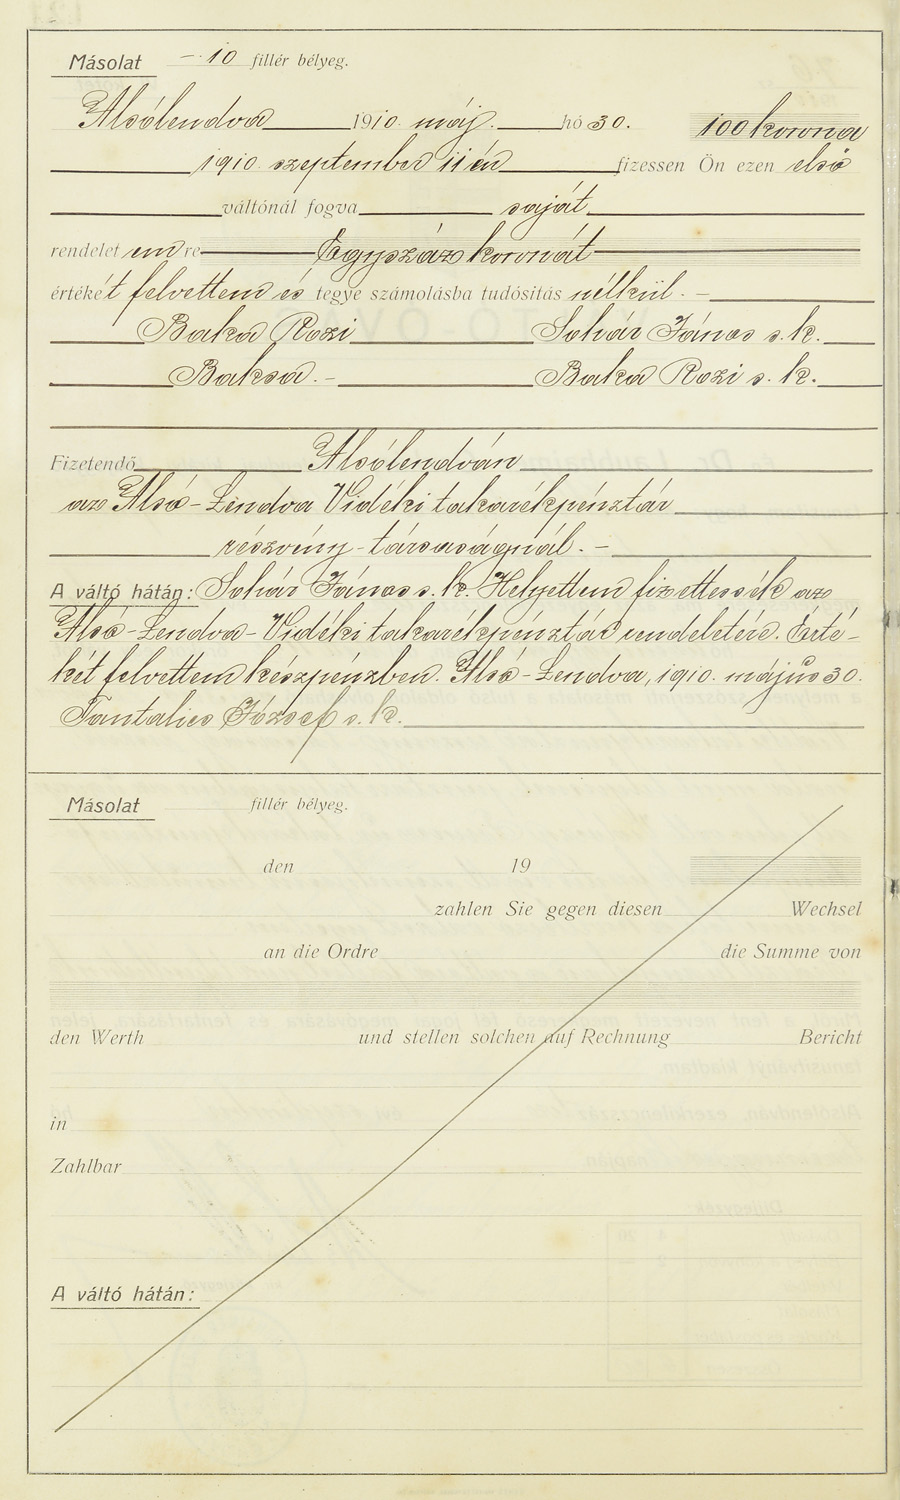 Másolat - 10 fillér bélyeg.
Alsólendva 1910. máj. hó 30. 100 korona
1910. szeptember 11én fizessen Ön ezen első
váltónál fogva saját
rendeletemre Egyszáz koronát
értékét felvettem és tegye számolásba tudósítás nélkül. -
Baka Rozi Sohár János s. k.
Baksa. - Baka Rozi s. k.
Fizetendő Alsólendván
az Alsó-Lendva Vidéki takarékpénztár
részvény-társaságnál. -
A váltó hátán: Sohár János s. k. Helyettem fizettessék az
Alsó-Lendva-Vidéki takarékpénztár rendeletére. Érté-
két felvettem készpénzben. Alsó-Lendva, 1910. május 30.
József s. k.
Másolat fillér bélyeg.
den 19
zahlen Sie gegen diesen Wechsel
an die Ordre die Summe von
den Werth und stellen solchen auf Rechnung Bericht
in
Zahlbar
A váltó hátán: